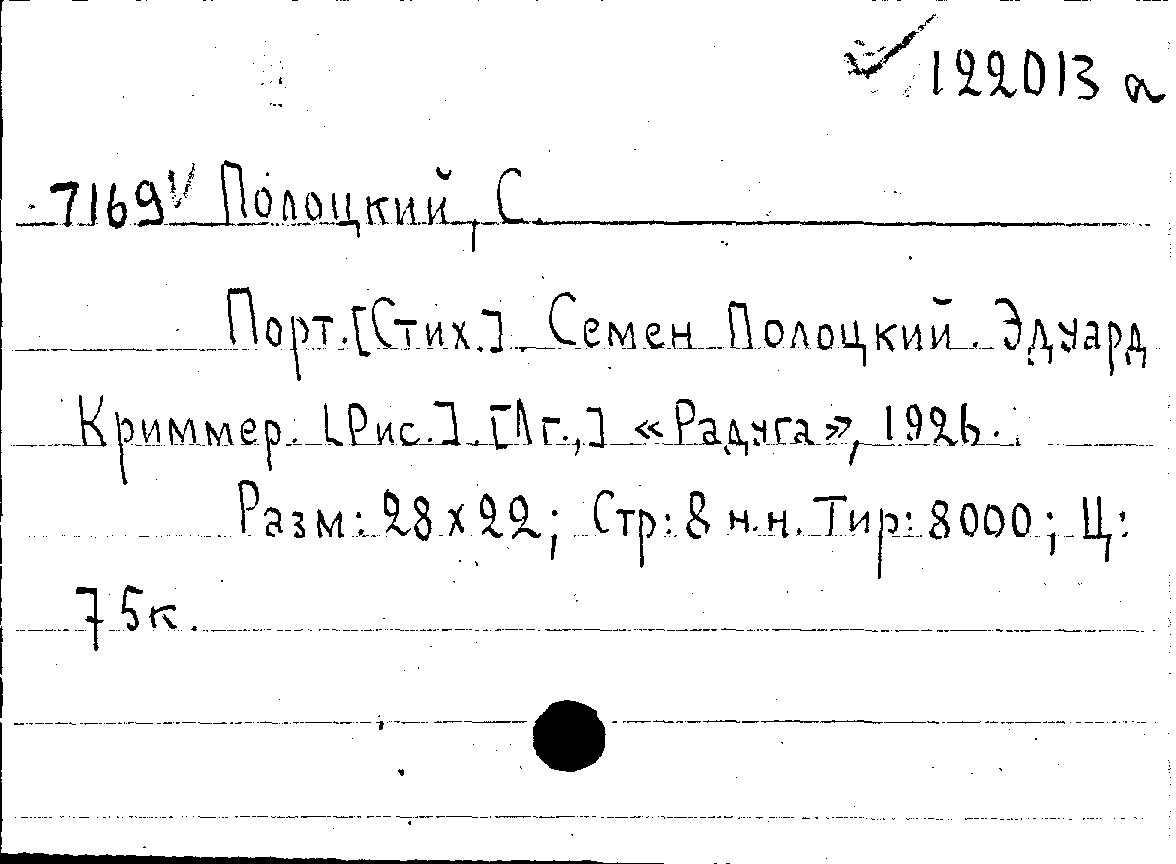 122013 а
7169 Полоцкий, С.
Порт. [Стих.]. Семен Полоцкий. Эдуард
Криммер. [Рис.]. [Лг.,] «Радуга», 1926.
Разм: 28х22; Стр: 8 н.н. Тир: 8000; Ц:
75к.